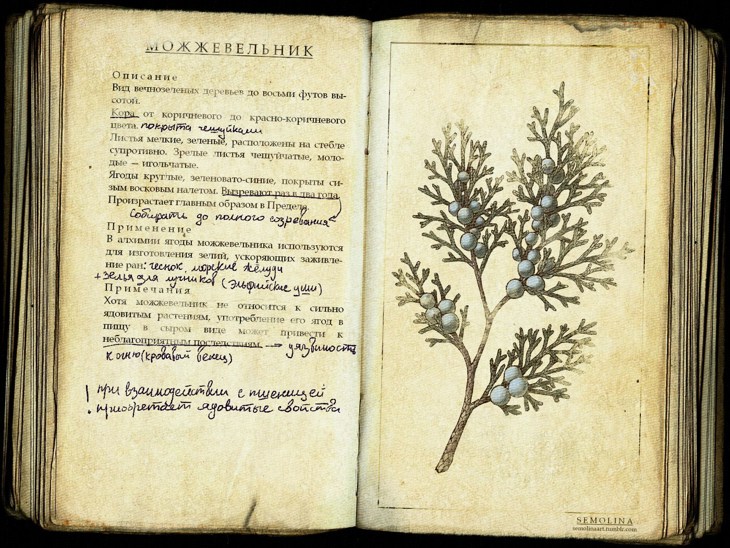 МОЖЖЕВЕЛЬНИК
Описание
Вид вечнозеленых деревьев до восьми футов вы-
сотой.
Кора от коричневого до красно-коричневого
цвета. покрыта чешуйками
Листья мелкие, зеленые, расположены на стебле
супротивно. Зрелые листья чешуйчатые, моло-
дые — игольчатые.
Ягоды круглые, зеленовато-синие, покрыты си-
зым восковым налетом. Вызревают раз в два года.
Произрастает главным образом в Пределе.
Собирать до полного созревания
Применение
В алхимии ягоды можжевельника используются
для изготовления зелий, ускоряющих заживле-
ние ран: чеснок, морские желуди
+ зелья для лучников (Эльфийские уши)
Примечания
Хотя можжевельник не относится к сильно
ядовитым растениям, употребление его ягод в
пищу в сыром виде может привести к
неблагоприятным последствиям. → уязвимость
к огню (кровавый венец)
! при взаимодействии с пшеницей
приобретает ядовитые свойства
SEMOLINA
semolinaart.tumblr.com